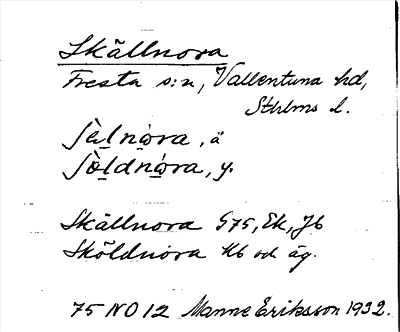 Skällnora
Fresta s:n, Vallentuna hd,
Sthlms l.
ʃὲlnὼra, ä
ʃöldnὼra, y.
Skällnora G75, Ek, Jb
Sköldnora Kb od äg.
75 NO 12 Manne Eriksson 1932.